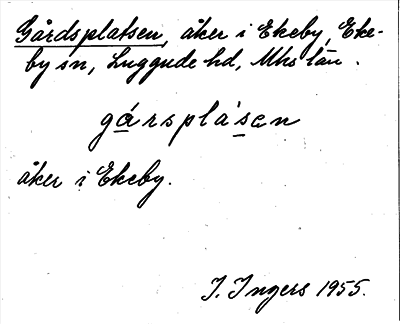 Gårdsplatsen, åker i Ekeby, Eke-
by sn, Luggude hd, Mhs län.
gársplásen
åker i Ekeby.
I. Ingers 1955.